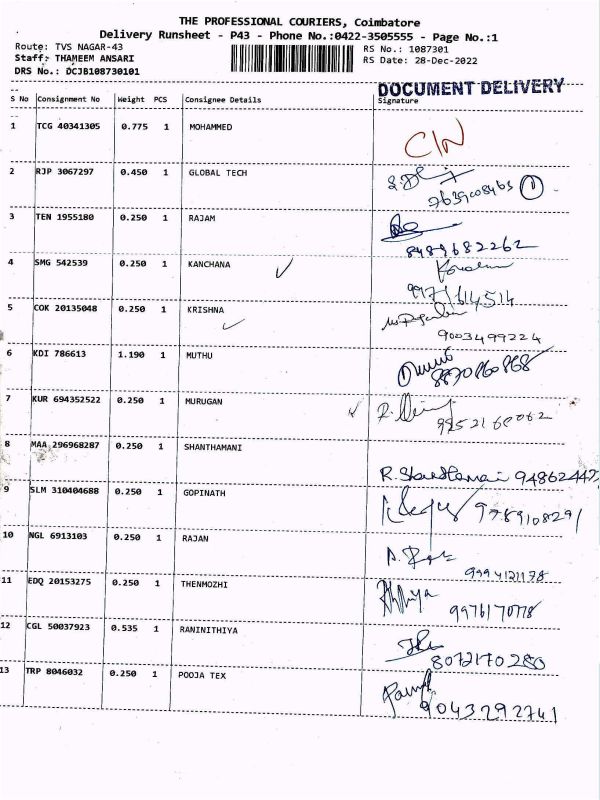 THE PROFESSIONAL COURIERS, Coimbatore
Delivery Runsheet - P43 - Phone No.:0422-3505555 - Page No.:1
Route: TVS NAGAR-43 RS No.: 1087301
Staff: THAMEEM ANSARI RS Date: 28-Dec-2022
DRS No.: DCJB108730101
DOCUMENT DELIVERY
S No Consignment No Weight PCS Consignee Details Signature
1 TCG 40341305 0.775 1 MOHAMMED
2 RJP 3067297 0.450 1 GLOBAL TECH
7639008463 1
3 TEN 1955180 0.250 1 RAJAM
8489682262
4 SMG 542539 0.250 1 KANCHANA
9971614514
5 COK 20135048 0.250 1 KRISHNA
9003499224
6 KDI 786613 1.190 1 MUTHU
8870860868
7 KUR 694352522 0.250 1 MURUGAN
8 MAA 296968287 0.250 1 SHANTHAMANI
9 SLM 310404688 0.250 1 GOPINATH
9789108291
10 NGL 6913103 0.250 1 RAJAN
9994121178
11 EDQ 20153275 0.250 1 THENMOZHI
9976170778
12 CGL 50037923 0.535 1 RANINITHIYA
8072170280
13 TRP 8046032 0.250 1 POOJA TEX
9043292741